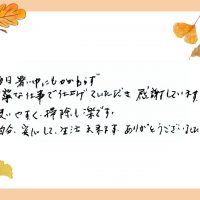 日暑い中にもかかわらず
寧な仕事で仕上げていただき感謝しています
使いやすく、掃除し楽です。
安心して、生活出来ます。ありがとうございました